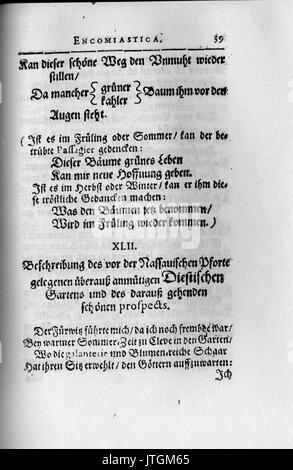 ENCOMIASTICA. 39
Kan dieser schöne Weg den Unmuht wieder
stillen/
Da mancher { grüner kahler } Baum ihm vor den
Augen steht.
(Ist es im Früling oder Sommer/ kan der be-
trübte Passagier gedencken:
Dieser Bäume grünes Leben
Kan mir neue Hoffnung geben.
Ist es im Herbst oder Winter/ kan er ihm die-
se tröstliche Gedancken machen:
Was den Bäumen jetz benommen/
Wird im Früling wieder kommen.)
XLII.
Beschreibung des vor der Nassauischen Pforte
gelegenen überauß anmütigen Diestischen
Gartens und des darauß gehenden
schönen prospects.
Der Fürwitz führte mich/ da ich noch frembde war/
Bey warmer Sommer-Zeit zu Cleve in den Garten/
Wo die galanterie und Blumen-reiche Schaar
Hat ihren Sitz erwehlt/ den Göttern auffzuwarten:
Ich
alamy
alamy stock photo
JTGM65
www.alamy.com